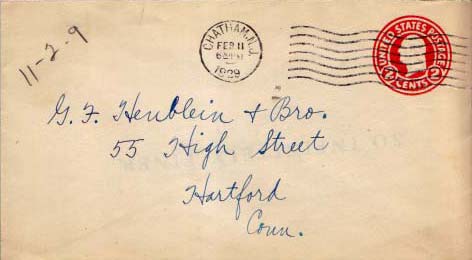 11-2-9
CHATHAM, N.J.
FEB 11
1929
UNITED STATES POSTAGE
2 CENTS 2
G. F. Heublein & Bro.
55 High Street
Hartford
Conn.